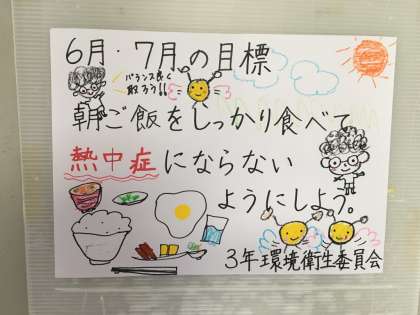 6月・7月の目標
バランス良く
取ろう!!
朝ご飯をしっかり食べて
熱中症にならない
ようにしよう。
3年環境衛生委員会